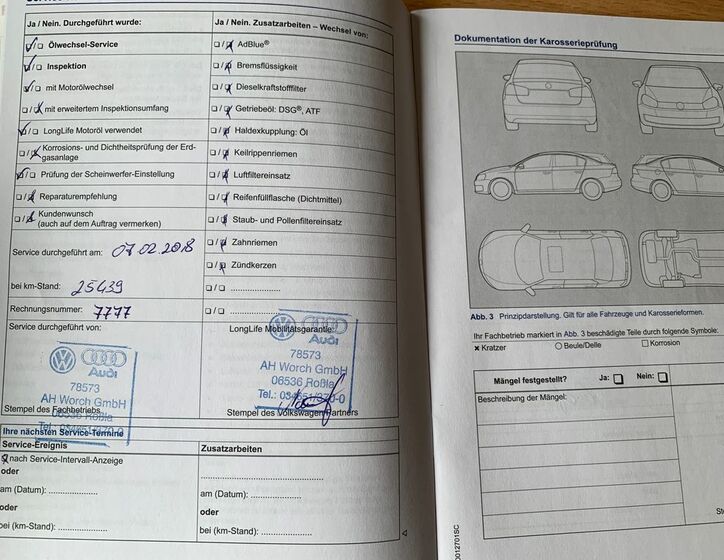 Ja / Nein. Durchgeführt wurde:
Ölwechsel-Service
Inspektion
mit Motorölwechsel
mit erweitertem Inspektionsumfang
LongLife Motoröl verwendet
Korrosions- und Dichtheitsprüfung der Erd-
gasanlage
Prüfung der Scheinwerfer-Einstellung
Reparaturempfehlung
Kundenwunsch
(auch auf dem Auftrag vermerken)
Service durchgeführt am: 07.02.2018
bei km-Stand: 25439
Rechnungsnummer: 7777
Service durchgeführt von:
Audi
78573
AH Worch GmbH
06536 Roßla
Stempel des Fachbetriebs
Ja / Nein. Zusatzarbeiten – Wechsel von:
AdBlue®
Bremsflüssigkeit
Dieselkraftstofffilter
Getriebeöl: DSG®, ATF
Haldexkupplung: Öl
Keilrippenriemen
Luftfiltereinsatz
Reifenfüllflasche (Dichtmittel)
Staub- und Pollenfiltereinsatz
Zahnriemen
Zündkerzen
LongLife Mobilitätsgarantie:
Audi
78573
AH Worch GmbH
06536 Roßla
Stempel des Volkswagen Partners
Ihre nächsten Service-Termine
Service-Ereignis
nach Service-Intervall-Anzeige
oder
am (Datum): ....................
oder
bei (km-Stand): ....................
Zusatzarbeiten
am (Datum): ....................
oder
bei (km-Stand): ....................
Dokumentation der Karosserieprüfung
Abb. 3 Prinzipdarstellung. Gilt für alle Fahrzeuge und Karosserieformen.
Ihr Fachbetrieb markiert in Abb. 3 beschädigte Teile durch folgende Symbole:
× Kratzer ○ Beule/Delle □ Korrosion
Mängel festgestellt? Ja: Nein:
Beschreibung der Mängel: